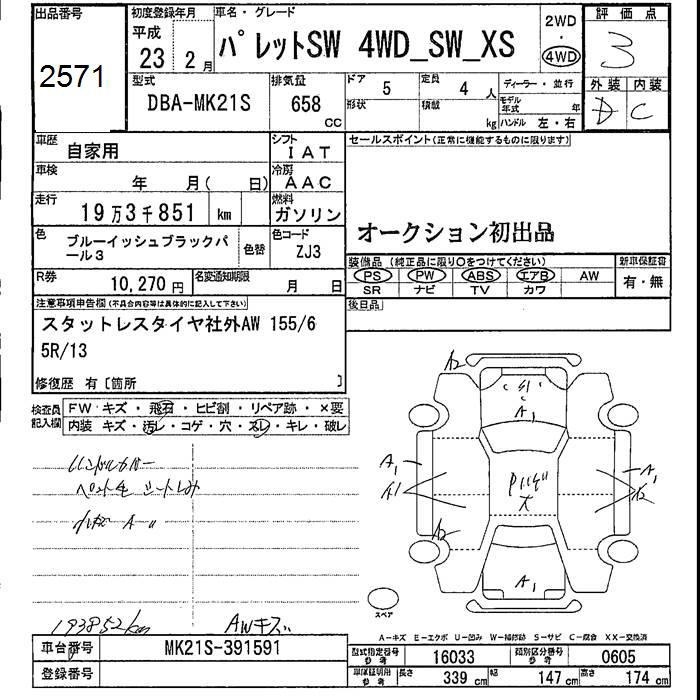 出品番号 初度登録年月 車名・グレード 2WD 評価点
平成 23 2月 パレットSW 4WD_SW_XS ・ 4WD 3
2571
型式 排気量 ドア 5 定員 4人 ディーラー・並行 外装 内装
DBA-MK21S 658 cc 形状 積載 kg モデル年式 年 D C
ハンドル 左・右
車歴 自家用 シフト IAT セールスポイント(正常に機能するものに限ります)
車検 年 月( 日) 冷房 AAC
走行 19万3千851 km 燃料 ガソリン オークション初出品
色 ブルーイッシュブラックパール3 色替 色コード ZJ3
装備品(純正品に限り○をつけてください) 新車保証書
PS PW ABS エアB AW 有・無
SR ナビ TV カワ
R券 10,270円 名変通知期限 月 日
後日品
注意事項申告欄(不具合内容等は具体的に記入して下さい)
スタットレスタイヤ社外AW 155/6
5R/13
修復歴 有〔箇所 〕
検査員記入欄 FW キズ・飛石・ヒビ割・リペア跡・×要
内装 キズ・汚レ・コゲ・穴・スレ・キレ・破レ
A2
A1
A1
A1
A1
A2
A2
A1
スペア
193852km AWキズ
A－キズ E－エクボ U－凹み W－補修跡 S－サビ C－腐食 XX－交換済
車台番号 MK21S-391591 型式指定番号 参考 16033 類別区分番号 参考 0605
登録番号 車保証明用 参考 長さ 339 cm 幅 147 cm 高さ 174 cm